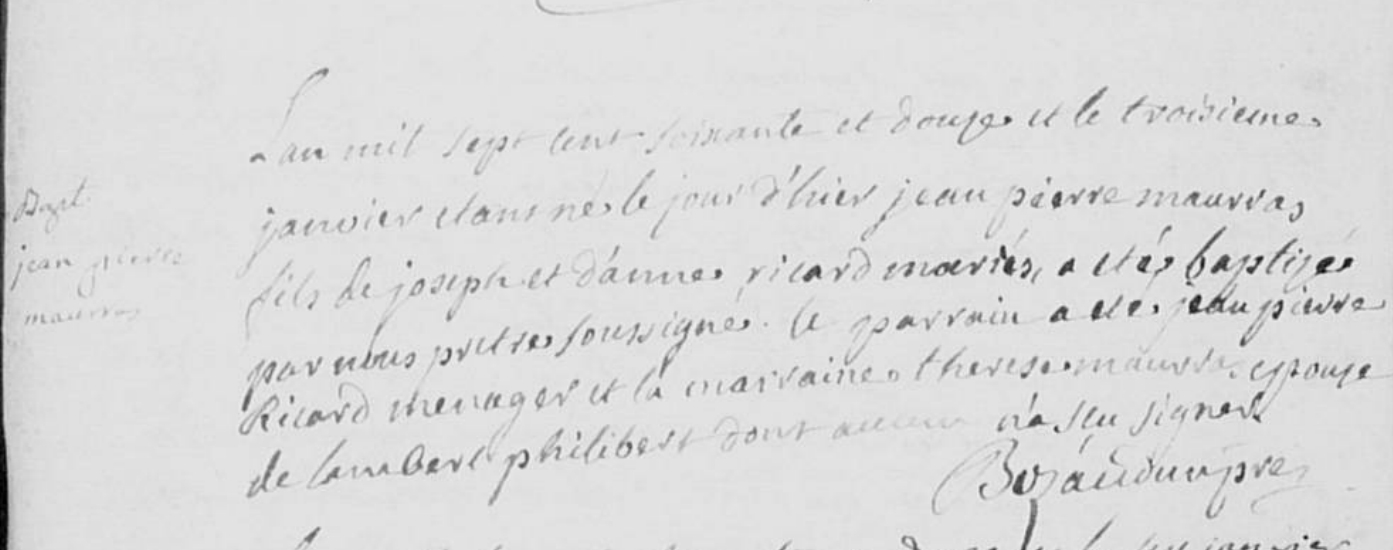 Bapt.
jean pierre
maurras
L'an mil sept cent soixante et douze et le troisieme
janvier etant né le jour d'hier jean pierre maurras
fils de joseph et d'anne ricard mariés, a eté baptizé
par nous pretre soussigné. le parrain a eté jean pierre
Ricard menager et la marraine therese maurras epouze
de lambert philibert dont aucun n'a sçu signer
janvier